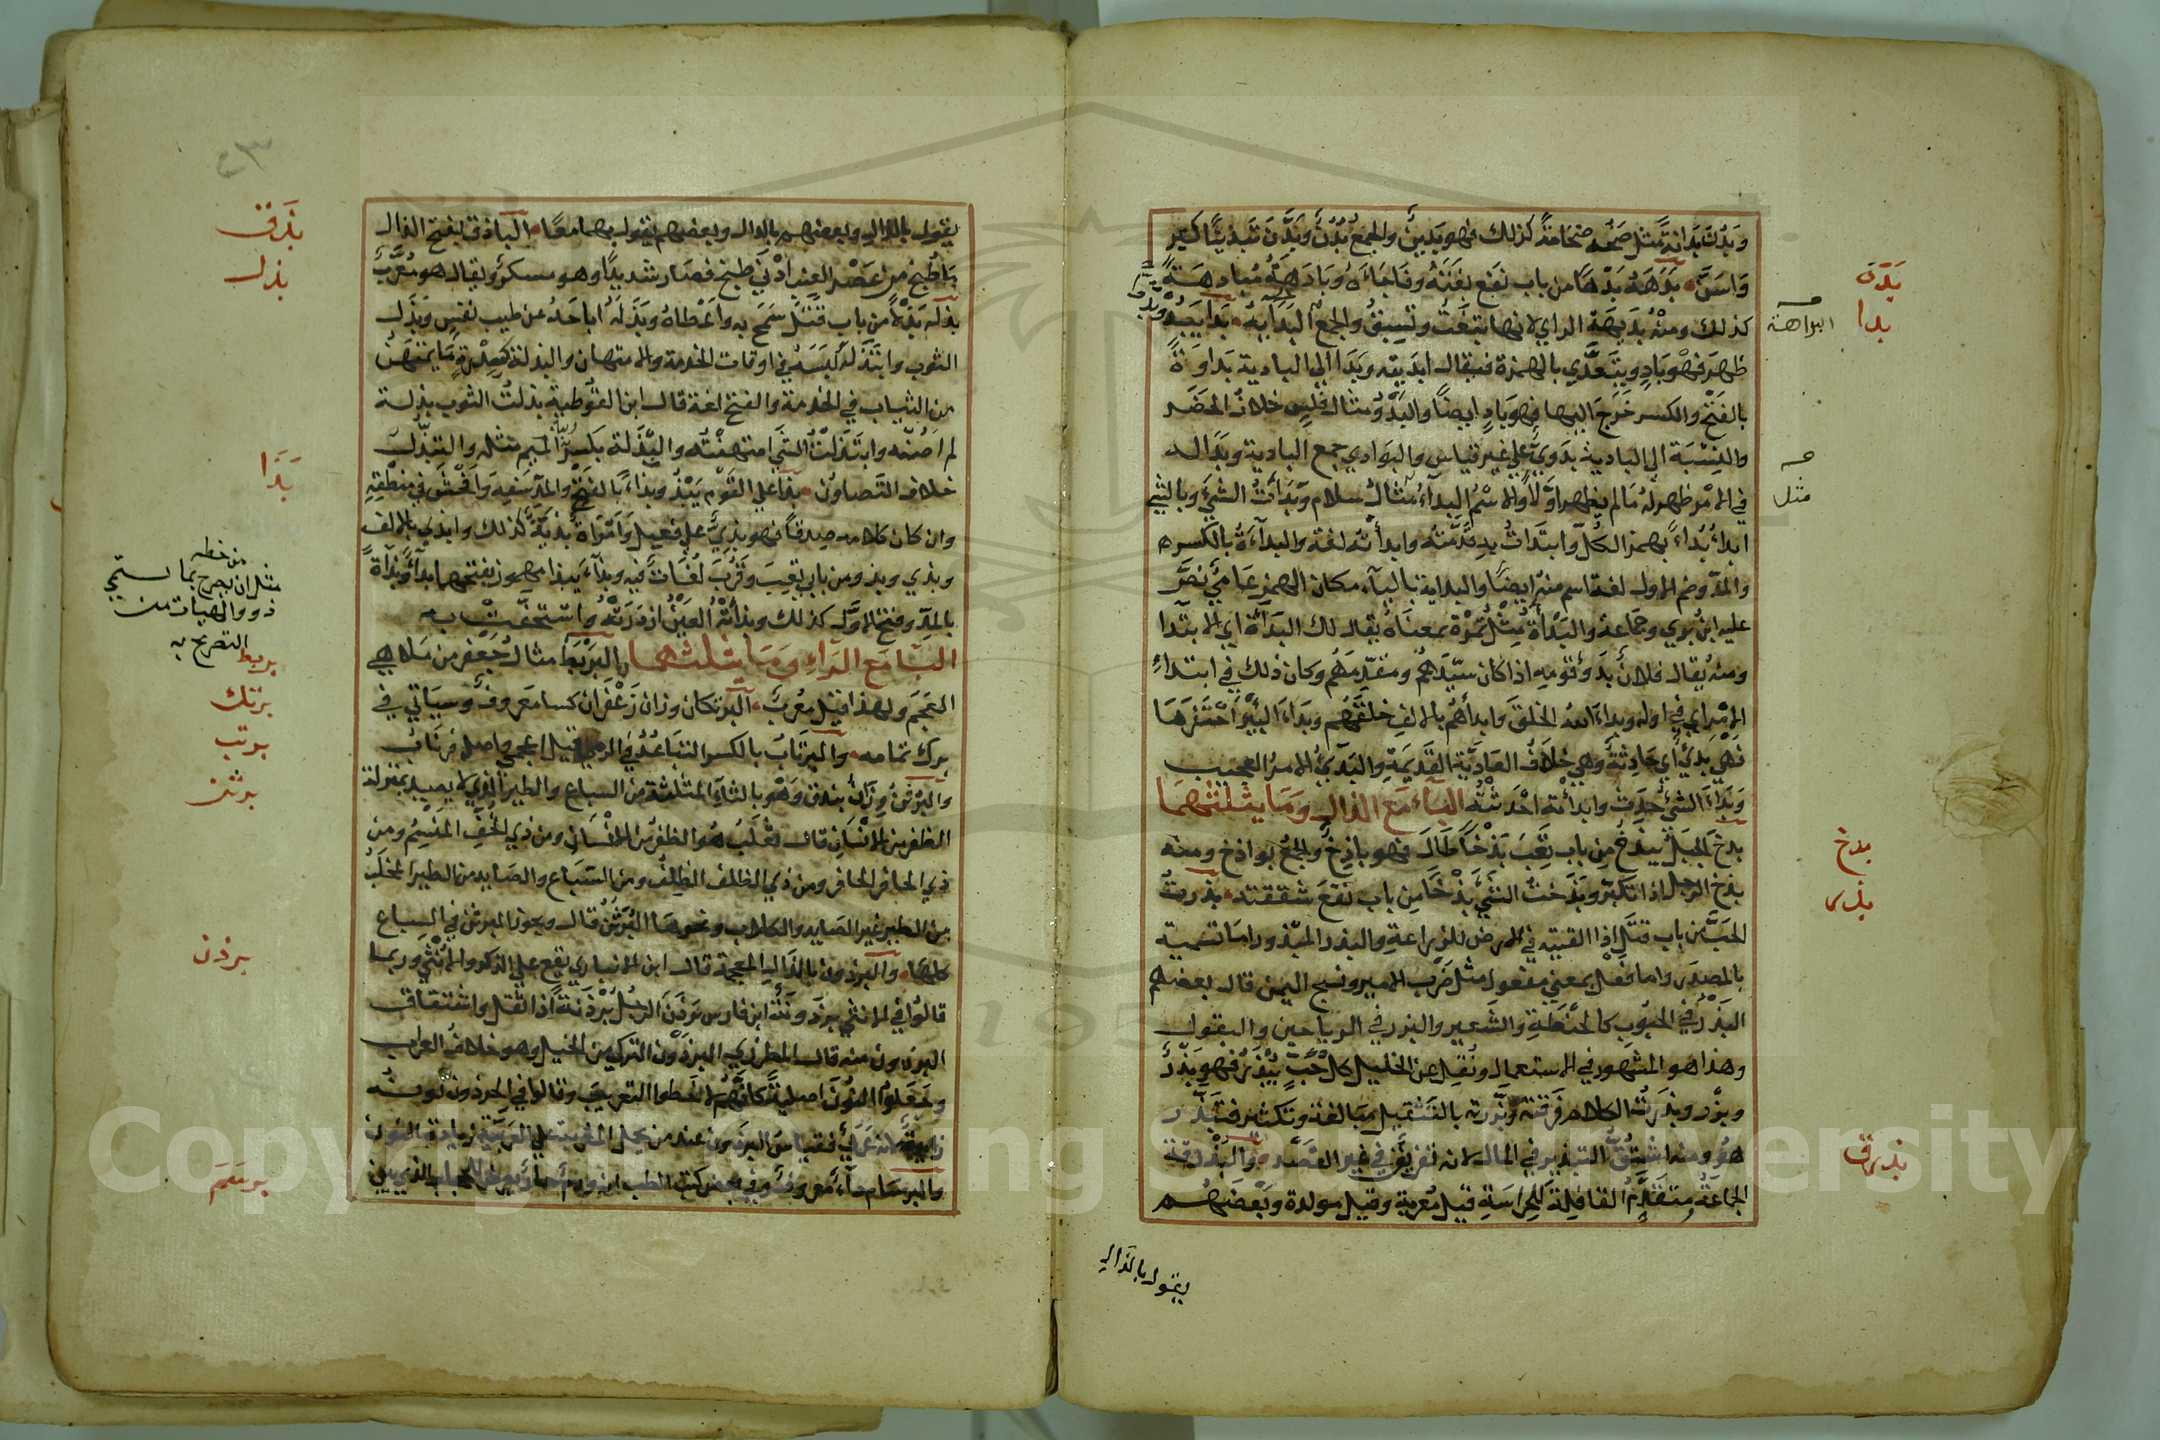 وبَدُنَ بَدَانَةً مثل ضَخُمَ ضخامةً كذلك فهو بَدينٌ والجمع بُدُنٌ وبَدَّنَ تَبدينًا كبر
وَاسَنَّ بَدَهَهُ بَدْهًا من باب نفع بغَتَهُ وفاجَاءَهُ وبادَهَهُ مُبادهَةً
كذلك ومنْهُ بَديهَة الراي لانها تبغَتُ وتسبقُ والجمع البَدَايِهُ بَدَا يَبْدُو
ظَهَرَ فهُو بَادٍ ويتعَدَّي بالهمزة فيقال ابديته وبَدَا الي البادية بَدَاوَةً
بالفَتْح والكسر خَرَجَ اليها فهو بَادٍ ايضًا والبَدْوُ مثال فلس خلاف الحضَر
والنِسْبَة الي البادية بدَوِيٌّ علي غير قياس والبوادي جمع البادية وبَدَا له
في الامْر ظهر له مَالم يظهر اوَّلاً والاسْمُ البدآءُ مثال سلام وبَدَأتُ الشيءَ وبالشيء
ابدَاُ بُداءً بهمز الكلّ وابتدَاتُ به قدَّمته وابدأته لغة والبدآءَةُ بالكسره
والمدّ وضم الاول لغة اسم منهُ ايضًا والبداية باليآء مكان الهمز عَامِّي نصَّ
عليه ابنُ بَرِّي وجمَاعة والبَدْأَةُ مِثْل تَمْرَة بمعنَاهُ يقال لك البَدْأَة اي الابتدا
ومنه يقال فلانٌ بدَءُ قومِه اذا كان سيّدَهُم ومقدّمَهُم وكان ذلك في ابتداءِ
الامْر اي في اوله وبداءَ اللهُ الخلقَ وابدأهُم بالالف خلقَهُم وبَدَاءَ البِئْرَ احتَفرَهَا
فهي بدئٌ اي حَادِثةٌ وهي خلافُ العَادِيَّة القَديمَةِ والبَدئُ الامرُ العجيب
وَبَدَاءَ الشيءُ حدَثَ وابدأته احْدثْتُهُ البَآءَ مَعَ الذال ومَا يثلثهُمَا
بذخَ الجَبَلُ يبذخُ مِن باب تعِبَ بَذْخًا طَالَ فهو باذخٌ والجمع بواذخ ومنه
بذخ الرجل اذا تكبَّر وبَذَختُ الشيءَ بَذْخًا مِن باب نفعَ شققته بذرتُ
الحَبَّ من باب قتَل اذا القيته في الارض للزراعةِ والبذر المبذور اما تسمية
بالمصدَر واما فَعْل بمعني مفعول مثل ضَرْب الامير ونسج اليمن قال بعضهم
البَذْرُ في الحبُوب كالحنْطَةِ والشَعير والبزر في الرياحين والبقول
وهذا هو المشهور في الاستعمال ونُقِل عن الخليل كل حَبّ يُبْذَرُ فهو بَذْرٌ
وبزْر وبذرتُ الكلام فرقتهُ وبذّرته بالتثقيل مبالغة وتكثير فتَبذّر
هُوَ ومنه اشتُقَّ التبذير في المال لانه تفريقٌ في غير القصْد والبَذْرقة
الجمَاعَةُ مِتقَدّم القافِلة للحِراسَةِ قيل معرّبة وقيل مولدة وبَعْضهُم
يقول بالذال
بدن
بدا
البداهة
مثل
بدخ
بذر
بذرق
يقول بالذال وبعضهم بالدال وبعضهم يقول بهما معًا الباذق بفتح الذال
مَا طُبخ من عَصْير العنب ادْني طبخ فصَار شديدًا وهو مسكر ويقال هو معرَّبٌ
بذلَه بَذْلاً من باب قتَلَ سَمَحَ به واعْطاهُ وبَذَلَهُ اباحَهُ عن طيب نفسٍ وبَذَل
الثوب وابتذَلَهُ لَبسَهُ في اوقات الخدمة والامتهان والبذلة مثال سِدْرةٍ مَا يمتَهنُ
من الثياب في الخدمة والفتح لغة قال ابن القُوطية بذلتُ الثوب بذلة
لم اَصُنْه وابتَذَلْتُ الشيءَ امتهنْتُه والمِبْذَلة بكسر الميم مثله والتبذّل
خلاف التصاون بذا علي القَوْم يَبْذُو بذاءً بالفَتْح والمدّ سَفِهَ وَافحشَ في منطقِهِ
وان كان كلامه صِدقًا فهو بَذِيٌّ علي فعيل وامرَاَة بَذيَّةٌ كذلك وابذي بالالف
وبذي وبذو من بابي تعِبَ وقَرُبَ لغَاتٌ فيه وبذأ يبذأ مهموز بفتحهما بداءً وبذآةً
بالمدّ وفتح الاوّل كذلك وبذأتْهُ العَيْنُ ازدرتْهُ واستخفَّت به
البآ مَع الرَاءِ ومَا يثلثهما البَرْبَط مثال جَعْفر من مَلاهي
العَجَم ولهذا قيل معَربٌ البَرْتكان وزان زَعْفَران كسا معَروفٌ وسيَاتي في
برك تمامه والبِرْتابُ بالكسر التبَاعُدُ في الرمي قيل اعجمي واصله فرتابٌ
والبُرْثُنُ وِزَانُ بندق وَهُو بالثآءِ المثلثة من السباع والطير الذي لا يصيد بمنزلة
الظفر من الانسَانِ قال ثعْلَبٌ هُو الظفر من الانسَان ومن ذي الخفّ المنسِمُ ومن
ذي الحافر الحَافر ومن ذي الظلف الظِلفُ ومن السّبَاع والصَايد من الطير المخلَبُ
ومن الطير غير الصَايد والكلاب ونحوهَا البُرْثُنُ قال ويجوز البرثن في السباع
كلها والبرذون بالذَالِ المعجمة قال ابن الانباري يقع علي الذكر والانثي وربما
قالوُا في الانثي برذونَةٌ ابن فارس بَرذَنَ الرجُلُ بَرْذَنَةً اذا ثقل واشتقاق
البرذون منه قال المطرّزي البرذَوْن التركي من الخيل وهو خلافُ العِراب
وجعَلوا النوُن اصلية كانهُم لاحَظوا التعريبَ وقالوا في الحرذون نونه
زايدة لانه عَرَبيٌّ فقياسُ البرذون عند من يحمل المعَرّبة علي العَرَبيَّة زيادة النون
والبِرسَام دآءٌ معروفٌ وفي بعض كتب الطب انه ورَمٌ حَارّ يعرض للحجاب الذي بين
بذق
بذل
بَذَا
من خطه
مثل ان يجرح بما يستحي
ذوو الهيات من
التصريح به
بربط
برتك
برتب
برثن
برذن
برسَمَ
Copyright © King Saud University